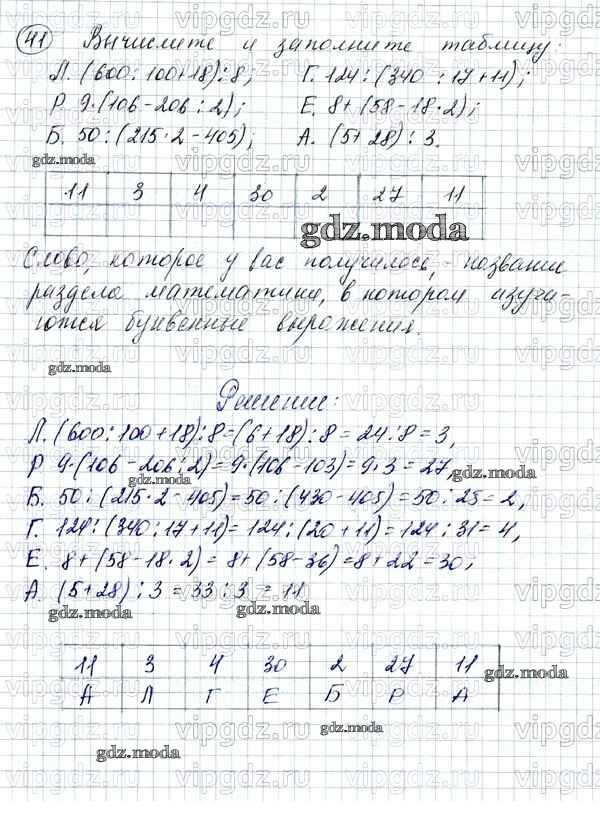 41 Вычислите и заполните таблицу:
Л. (600 : 100 + 18) : 8; Г. 124 : (340 : 17 + 11);
Р 9·(106 - 206 : 2); Е. 8 + (58 - 18·2);
Б. 50 : (215·2 - 405); А. (5 + 28) : 3.
gdz.moda
11 3 4 30 2 27 11
gdz.moda
Слово, которое у вас получилось, - название
раздела математики, в котором изуча-
ются буквенные выражения.
gdz.moda
Решение:
Л. (600 : 100 + 18) : 8 = (6 + 18) : 8 = 24 : 8 = 3,
Р 9·(106 - 206 : 2) = 9·(106 - 103) = 9·3 = 27,
gdz.moda
gdz.moda
Б. 50 : (215·2 - 405) = 50 : (430 - 405) = 50 : 25 = 2,
Г. 124 : (340 : 17 + 11) = 124 : (20 + 11) = 124 : 31 = 4,
Е. 8 + (58 - 18·2) = 8 + (58 - 36) = 8 + 22 = 30;
А. (5 + 28) : 3 = 33 : 3 = 11
gdz.moda gdz.moda
11 3 4 30 2 27 11
gdz.moda
А Л Г Е Б Р А
gdz.moda
gdz.moda
vipgdz.ru